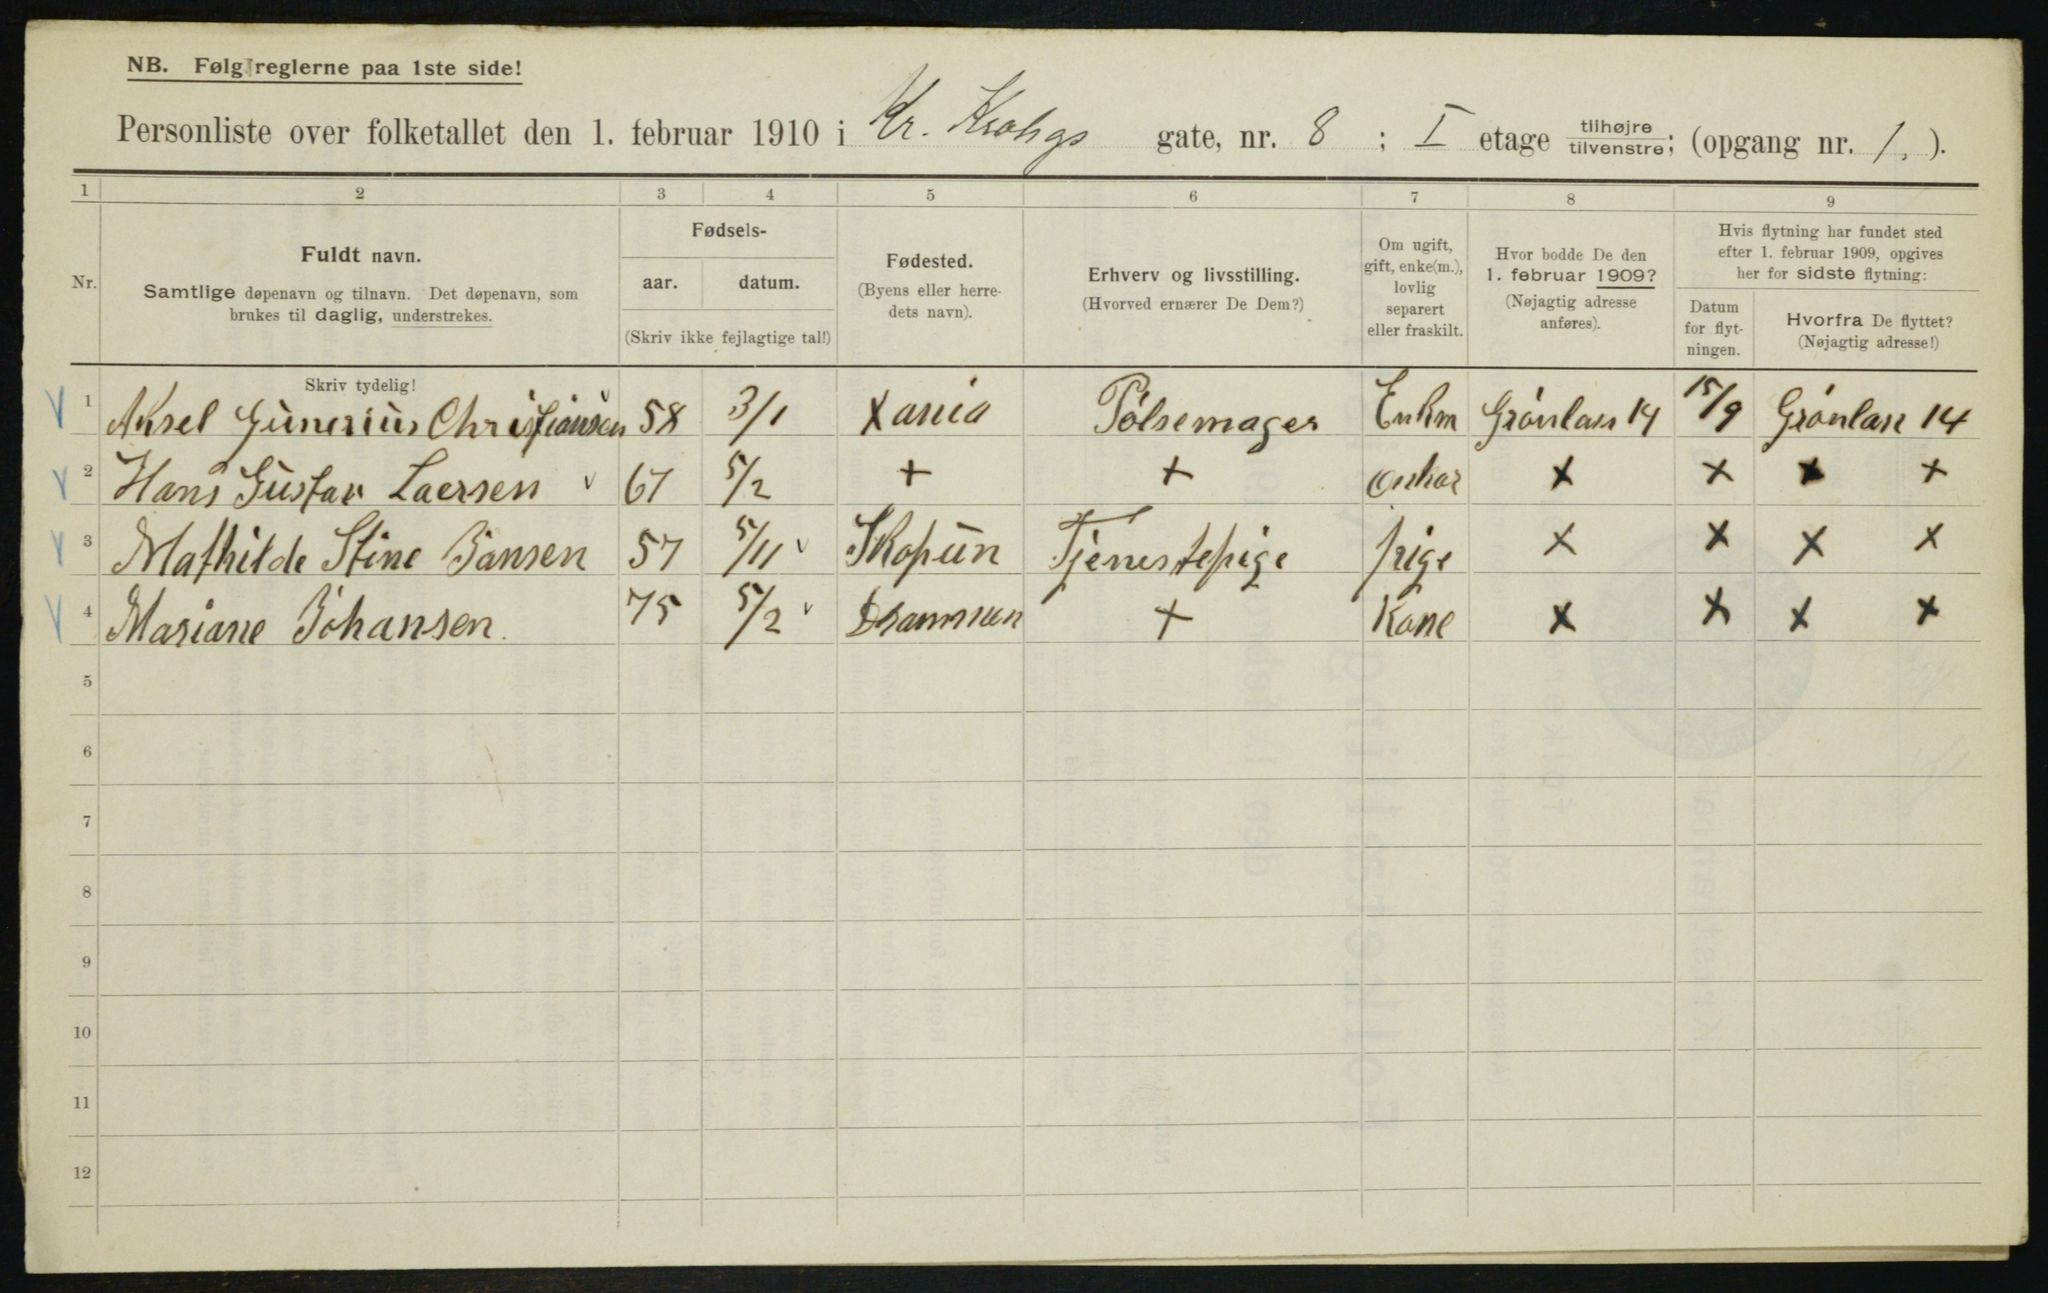 NB. Følg reglerne paa 1ste side!
Personliste over folketallet den 1. februar 1910 i Kr. Krohgs gate, nr. 8 ; I etage tilhøjre tilvenstre; (opgang nr. 1. ).
1 2 3 4 5 6 7 8 9
Nr.
Fuldt navn.
Samtlige døpenavn og tilnavn. Det døpenavn, som
brukes til daglig, understrekes.
Fødsels-
aar. datum.
(Skriv ikke fejlagtige tal!)
Fødested.
(Byens eller herre-
dets navn).
Erhverv og livsstilling.
(Hvorved ernærer De Dem?)
Om ugift,
gift, enke(m.),
lovlig
separert
eller fraskilt.
Hvor bodde De den
1. februar 1909?
(Nøjagtig adresse
anføres).
Hvis flytning har fundet sted
efter 1. februar 1909, opgives
her for sidste flytning:
Datum
for flyt-
ningen.
Hvorfra De flyttet?
(Nøjagtig adresse!)
Skriv tydelig!
1 Aksel Gunerius Christiansen 58 3/1 Xania Pølsemager Enkm Grønlan 14 15/9 Grønlan 14
2 Hans Gustav Laersen 67 5/2 + + x x x x
3 Mathilde Stine Jansen 57 5/11 Skopun Tjenestepige pige x x x x
4 Mariane Johansen. 75 5/2 Drammen + Kone x x x x
5
6
7
8
9
10
11
12